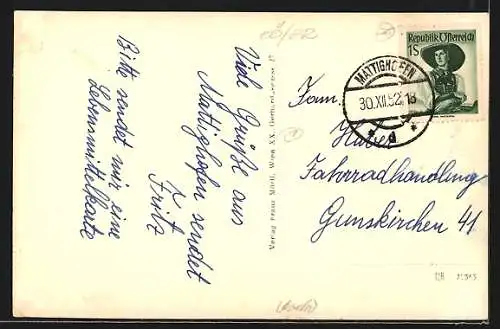 Viele Grüße aus
Mattighofen sendet
Fritz
Bitte sendet mir eine
Lebensmittelkarte
Verlag Franz Mörtl, Wien XX.
Republik Österreich
1S
MATTIGHOFEN
30.XII.52.18
d
Fam.
Huber
Fahrradhandlung
Gunskirchen 41